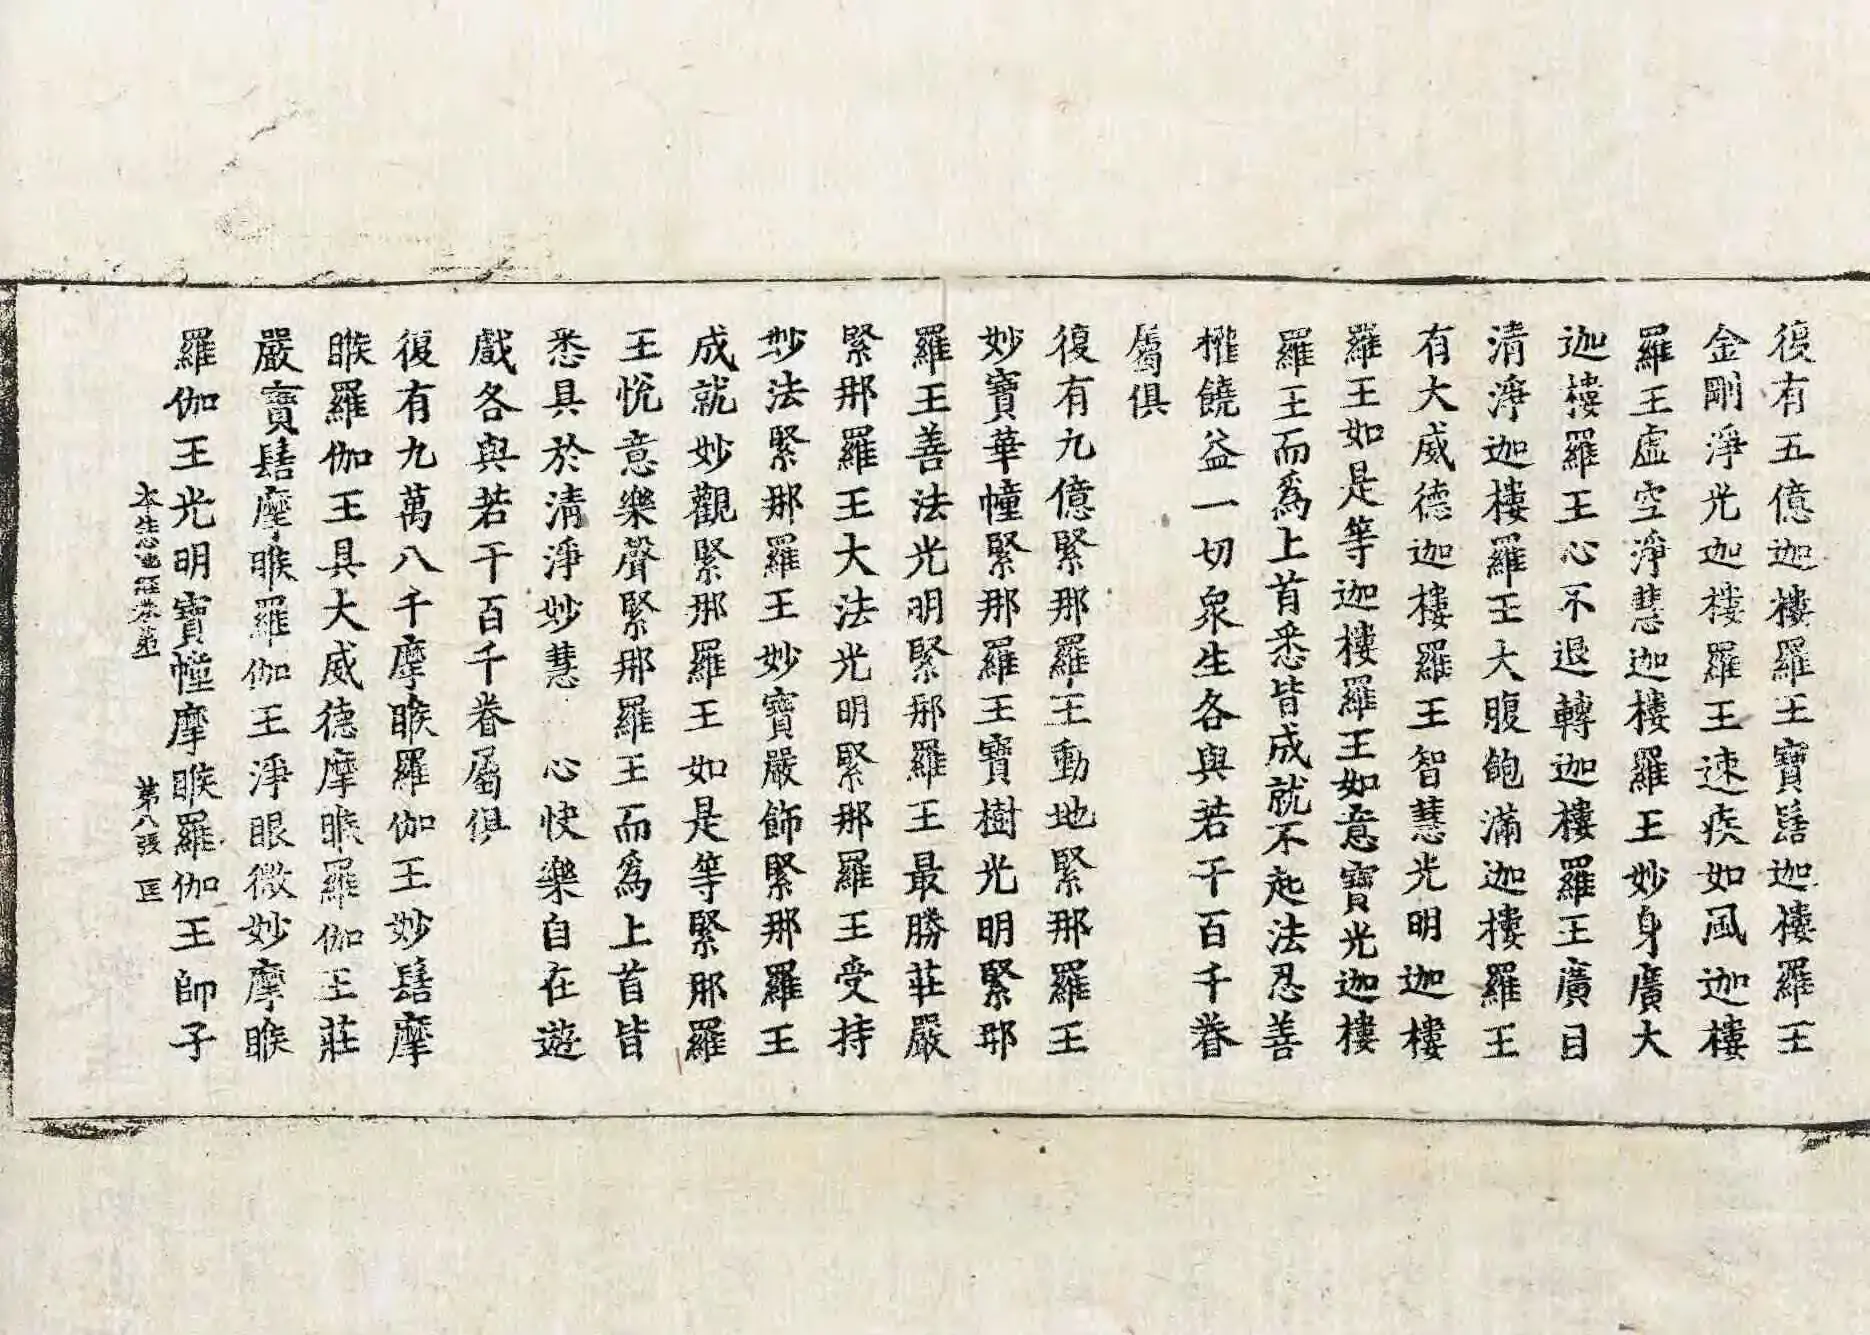 復有五億迦樓羅王寶髻迦樓羅王
金剛淨光迦樓羅王速疾如風迦樓
羅王虛空淨慧迦樓羅王妙身廣大
迦樓羅王心不退轉迦樓羅王廣目
清淨迦樓羅王大腹飽滿迦樓羅王
有大威德迦樓羅王智慧光明迦樓
羅王如是等迦樓羅王如意寶光迦樓
羅王而爲上首悉皆成就不起法忍善
權饒益一切衆生各與若干百千眷
屬俱
復有九億緊那羅王動地緊那羅王
妙寶華幢緊那羅王寶樹光明緊那
羅王善法光明緊那羅王最勝莊嚴
緊那羅王大法光明緊那羅王受持
妙法緊那羅王妙寶嚴飾緊那羅王
成就妙觀緊那羅王如是等緊那羅
王悅意樂聲緊那羅王而爲上首皆
悉具於清淨妙慧 心快樂自在遊
戲各與若干百千眷屬俱
復有九萬八千摩睺羅伽王妙髻摩
睺羅伽王具大威德摩睺羅伽王莊
嚴寶髻摩睺羅伽王淨眼微妙摩睺
羅伽王光明寶幢摩睺羅伽王師子
本生心地經卷第一 第八張 匡